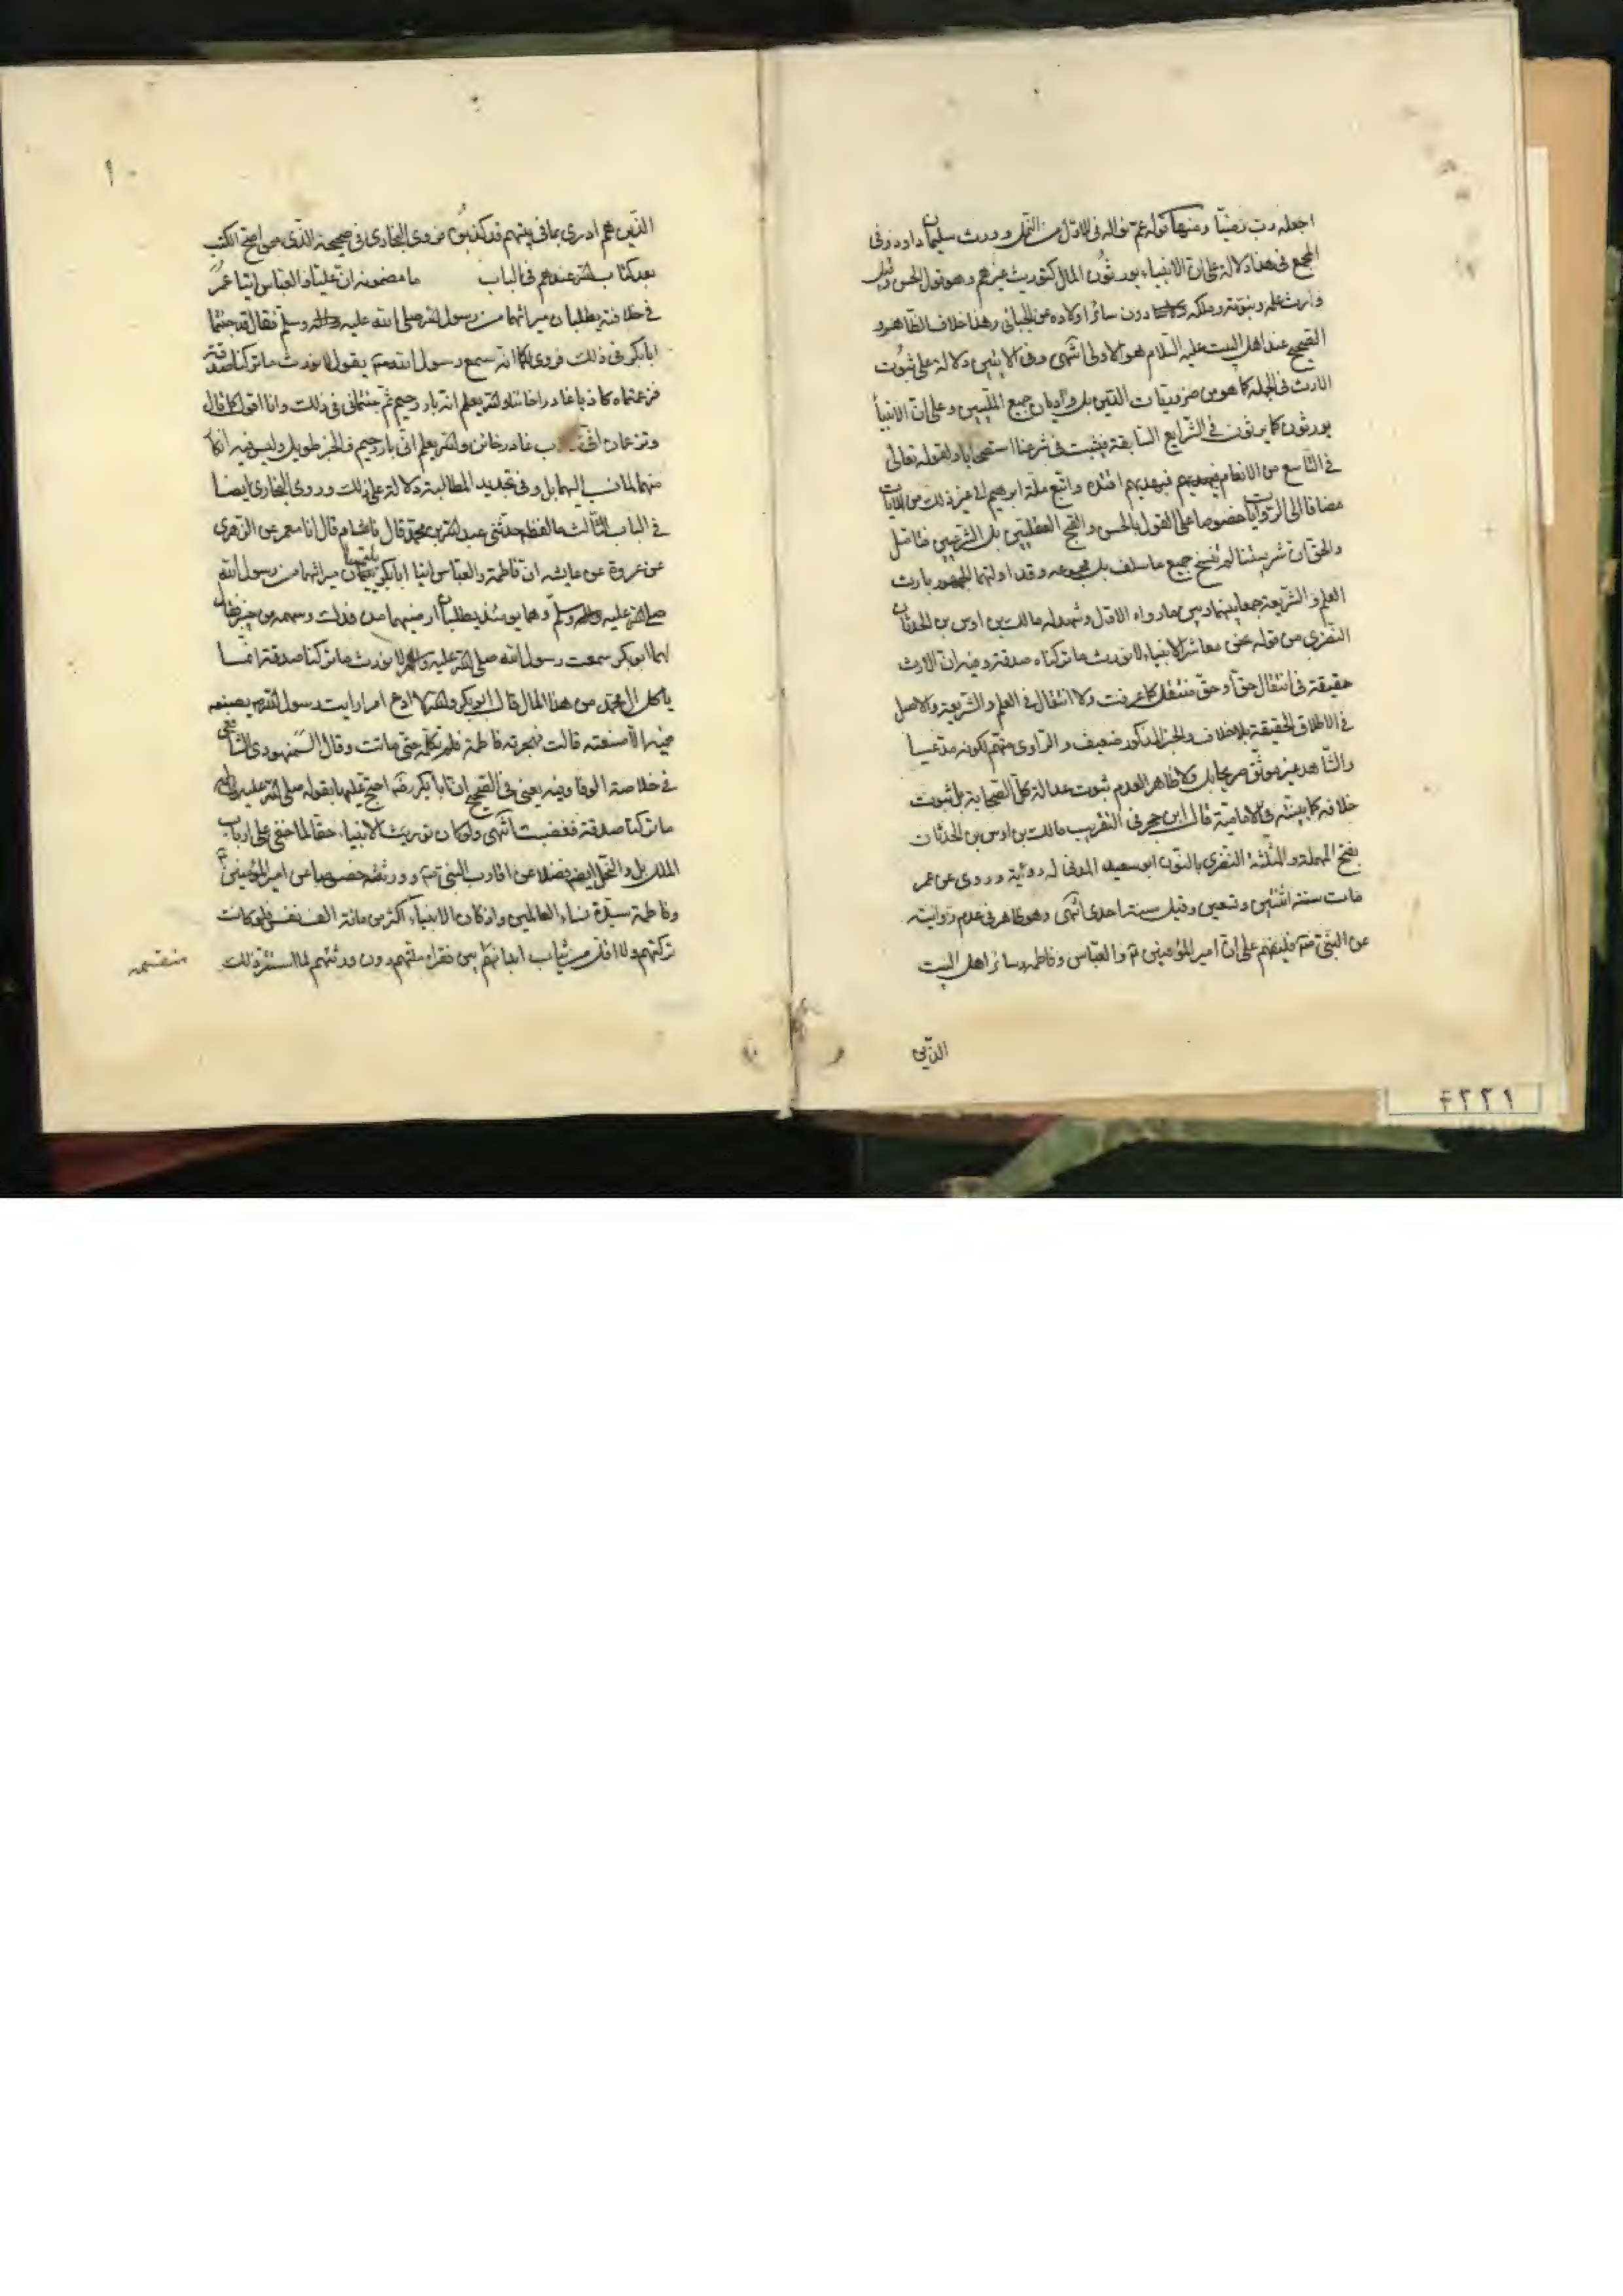 اجعله رب رضيّا ومنها قوله عم نواله في الاوّل من النّمل وورث سليمان داود وفي
المجمع في هذا دلالة على انّ الانبياء يورثون المال كتوريث غيرهم وهو قول الحسن وقيل
وارث علمه ونبوّته وملكه دون سائر اولاده عن الجبائي وهذا خلاف الظّاهر و
الصّحيح عند اهل البيت عليه السلام هو الاولى انتهى وفي الايتين دلالة على ثبوت
الارث في الجملة كما هو من ضروريات الدّين بل واديان جميع المليين وعلى انّ الانبيأ
يورثون كما يرثون في الشّرايع السّابقة فيثبت في شرعنا استصحابا ولقوله تعالى
في التّاسع من الانعام فبهديهم اقتده واتبع ملّة ابرهيم الى غير ذلك من الايات
مضافا الى الرّوايات خصوصا على القول بالحسن والقبح العقليّين بل الشّرعيين فتامّل
والحق ان شريعتنا لم تنسخ جميع ما سلف بل مجموعه وقد اوّلتهما الجمهور بارث
العلم والشّريعة جمعا بينهما وبين ما رواه الاوّل وشهد له مالك بن اوس بن الحدثان
النّصري من قوله نحن معاشر الانبياء لا نورث ما تركناه صدقة وفيه ان الارث
حقيقة في انتقال حقّ او حقّ منتقل كما عرفت ولا انتقال في العلم والشّريعة والاصل
في الاطلاق الحقيقة بلا خلاف والخبر المذكور ضعيف والرّاوي متّهم لكونه مدّعيا
والشّاهد غير موثّق صريحا بل ولا ظاهر العدم ثبوت عدالة كلّ الصّحابة بل ثبوت
خلافه كما بيّنته في الامامية قال ابن حجر في التقريب مالك بن اوس بن الحدثان
بفتح المهملة والمثلّثة النّصري بالنّون ابو سعيد المدني له رؤية وروى عن عمر
مات سنة اثنتين وتسعين وقيل سنة احدى انتهى وهو ظاهر في عدم روايته
عن النّبيّ على ان امير المؤمنين والعبّاس وفاطمة وسائر اهل البيت
الذين
١٠
الذّين هم ادرى بما في بيتهم قد كذبوه فروى البخاري في صحيحه الذّي هو اصحّ الكتب
بعد كتاب الله عندهم في الباب ما مضمونه ان عليّا والعباس اتيا عمر
في خلافته يطلبان ميراثهما من رسول الله صلى الله عليه واله وسلم فقال قد جئتما
ابا بكر في ذلك فروى لكما انّه سمع رسول الله يقول لا نورث ما تركنا صدقة
فزعمتماه كاذبا غادرا خائنا والله يعلم انه بار رحيم ثم جئتماني في ذلك وانا اقول كما قال
وتزعمان انّي غادر خائن والله يعلم انّي بار رحيم والخبر طويل وليس فيه انكا
منهما لما نسب اليهما بل وفي تجديد المطالبة دلالة على ذلك وروى البخاري ايضا
في الباب الثّالث ما لفظه حدّثني عبد الله بن محمّد قال نا هشام قال انا معمر عن الزّهري
عن عروة عن عايشه ان فاطمة والعبّاس اتيا ابا بكر يلتمسان ميراثهما من رسول الله
صلى الله عليه واله وسلّم وهما يومئذ يطلبان ارضيهما من فدك وسهمه من خيبر فقال
لهما ابو بكر سمعت رسول الله صلى الله عليه واله لا نورث ما تركنا صدقة انما
ياكل ال محمّد من هذا المال قال ابو بكر والله لا ادع امرا رايت رسول الله يصنعه
فيه الا صنعته قالت فهجرته فاطمة فلم تكلّمه حتى ماتت وقال السّمهودي الشّافعي
في خلاصة الوفا وفيه يعني في الصّحيح ان ابا بكر رضه احتجّ عليها بقوله صلى الله عليه واله
ما تركنا صدقة فغضبت انتهى ولو كان توريث الانبياء حقّا لما خفي على ارباب
الملل بل والنّحل ايضا فضلا عن اقارب النبي وورثته خصوصا عن امير المؤمنين
وفاطمة سيّدة نساء العالمين واذ كان الانبياء اكثر من مائة الف نفس فلو كانت
تركتهم ولا اقل من ثياب ابدانهم بين فقراء ملّتهم دون ورثتهم لما استتر ذلك
منقسمه
۴۲۲۹